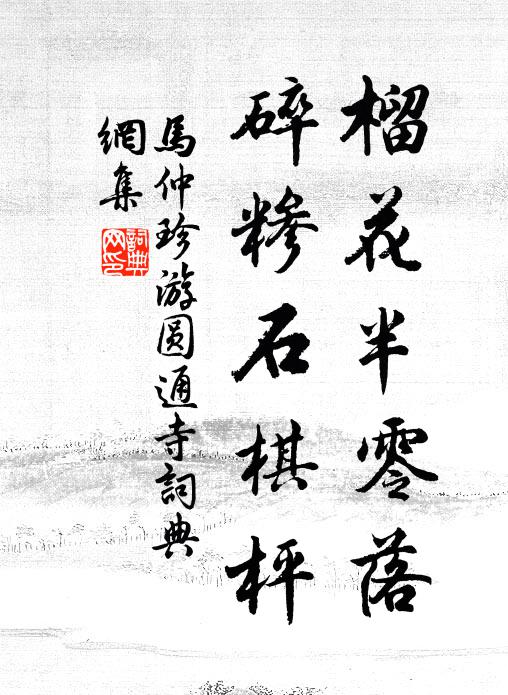 榴花半零落
碎糝石棋枰
馬仲珍游圆通寺詞典
網集
詞典
网印